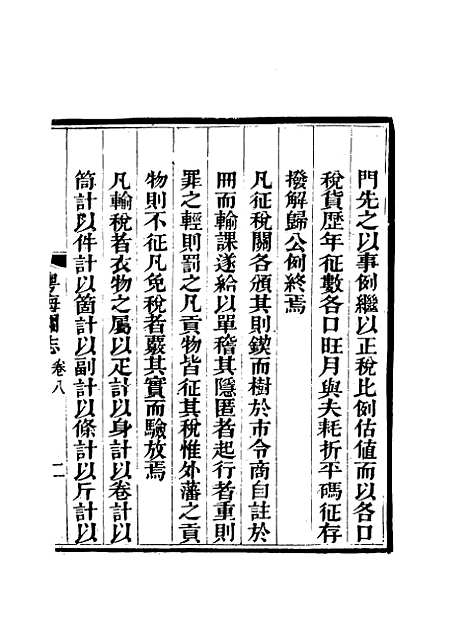 門先之以事例繼以正稅比例估值而以各口
稅貨歷年征數各口旺月與夫耗折平碼征存
撥解歸公例終焉
凡征稅關各頒其則鍥而樹於市令商自註於
冊而輸課遂給以單稽其隱匿者起行者重則
罪之輕則罰之凡貢物皆征其稅惟外藩之貢
物則不征凡免稅者覈其實而驗放焉
凡輸稅者衣物之屬以疋計以身計以卷計以
筒計以件計以箇計以副計以條計以斤計以
粵海關志 卷八 二